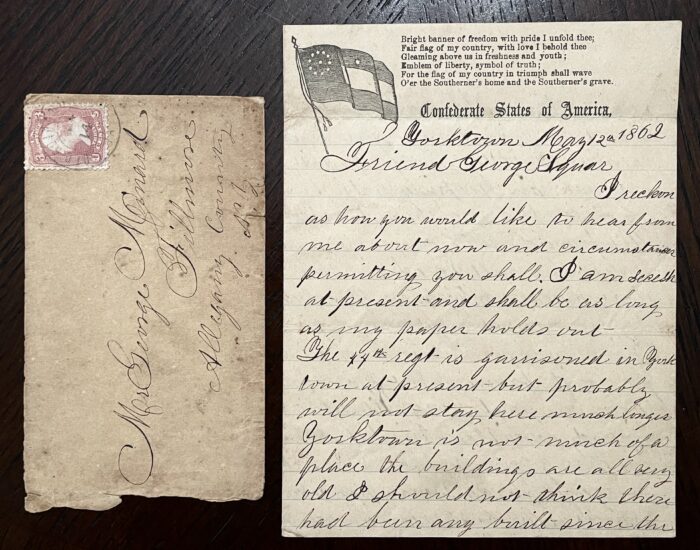 Mr George Minard
Fillmore
Allegany County
N Y
Bright banner of freedom with pride I unfold thee;
Fair flag of my country, with love I behold thee
Gleaming above us in freshness and youth;
Emblem of liberty, symbol of truth;
For the flag of my country in triumph shall wave
O'er the Southerner's home and the Southerner's grave.
Confederate States of America,
Yorktown May 12th 1862
Friend George Squar
I reckon
as how you would like to hear from
me about now and circumstances
permitting you shall. I am secesh
at present and shall be as long
as my paper holds out
The regt is garrisoned in York
town at present but probably
will not stay here much longer
Yorktown is not much of a
place the buildings are all very
old I should not think there
had been any built since the